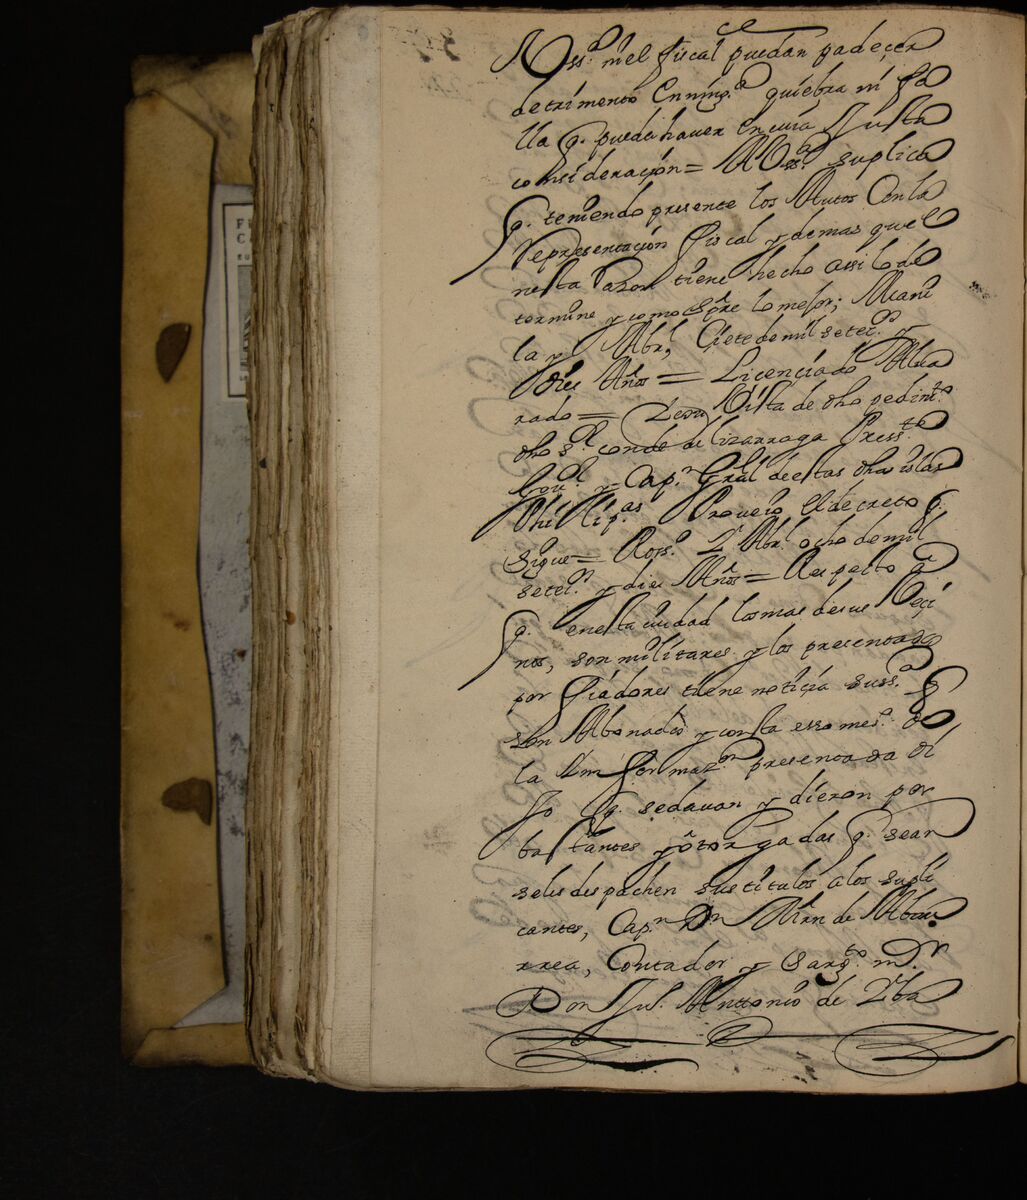 Vss.ª ni el fiscal puedan padeçer
detrimento en ning.ª quiebra ni fa
lla q.e pueda haver en cuia Justa
consideraçion = A Vss.ª suplica
q.e teniendo presente los Autos Con la
Representaçion fiscal y demas que e
nesta Razon tiene hecho assi lo de
termine y como sp̃re lo mejor; Mani
la y Abr.l Çiete de mil setec.s y
dies Años = Liçençiado Alua
rado = Vista de dho pedim.to
dho s.r conde de lizarraga Press.te
Gou.or y Cap.n Grãl de estas dhas islas
Philip.as Proueio el decreto q.e
sigue = Abril ocho de mil
setec.s y dies Años = Respecto a
q.e en esta ciudad los mas de sus Veçi
nos, son militares y los presentados
por fiadores tiene notiçia su ss.ª q.e
son Abonados y consta esso mes.º de
la Imformaz.on presentada di
Jo q.e se dauan y dieron por
bastantes y otorgadas q.e sean
seles despachen sus titulos a los supli
cantes, Cap.n D.n Mñn de Abau
rrea, Contador y Sarg.to m.or
Don Ju.º Anttonio de